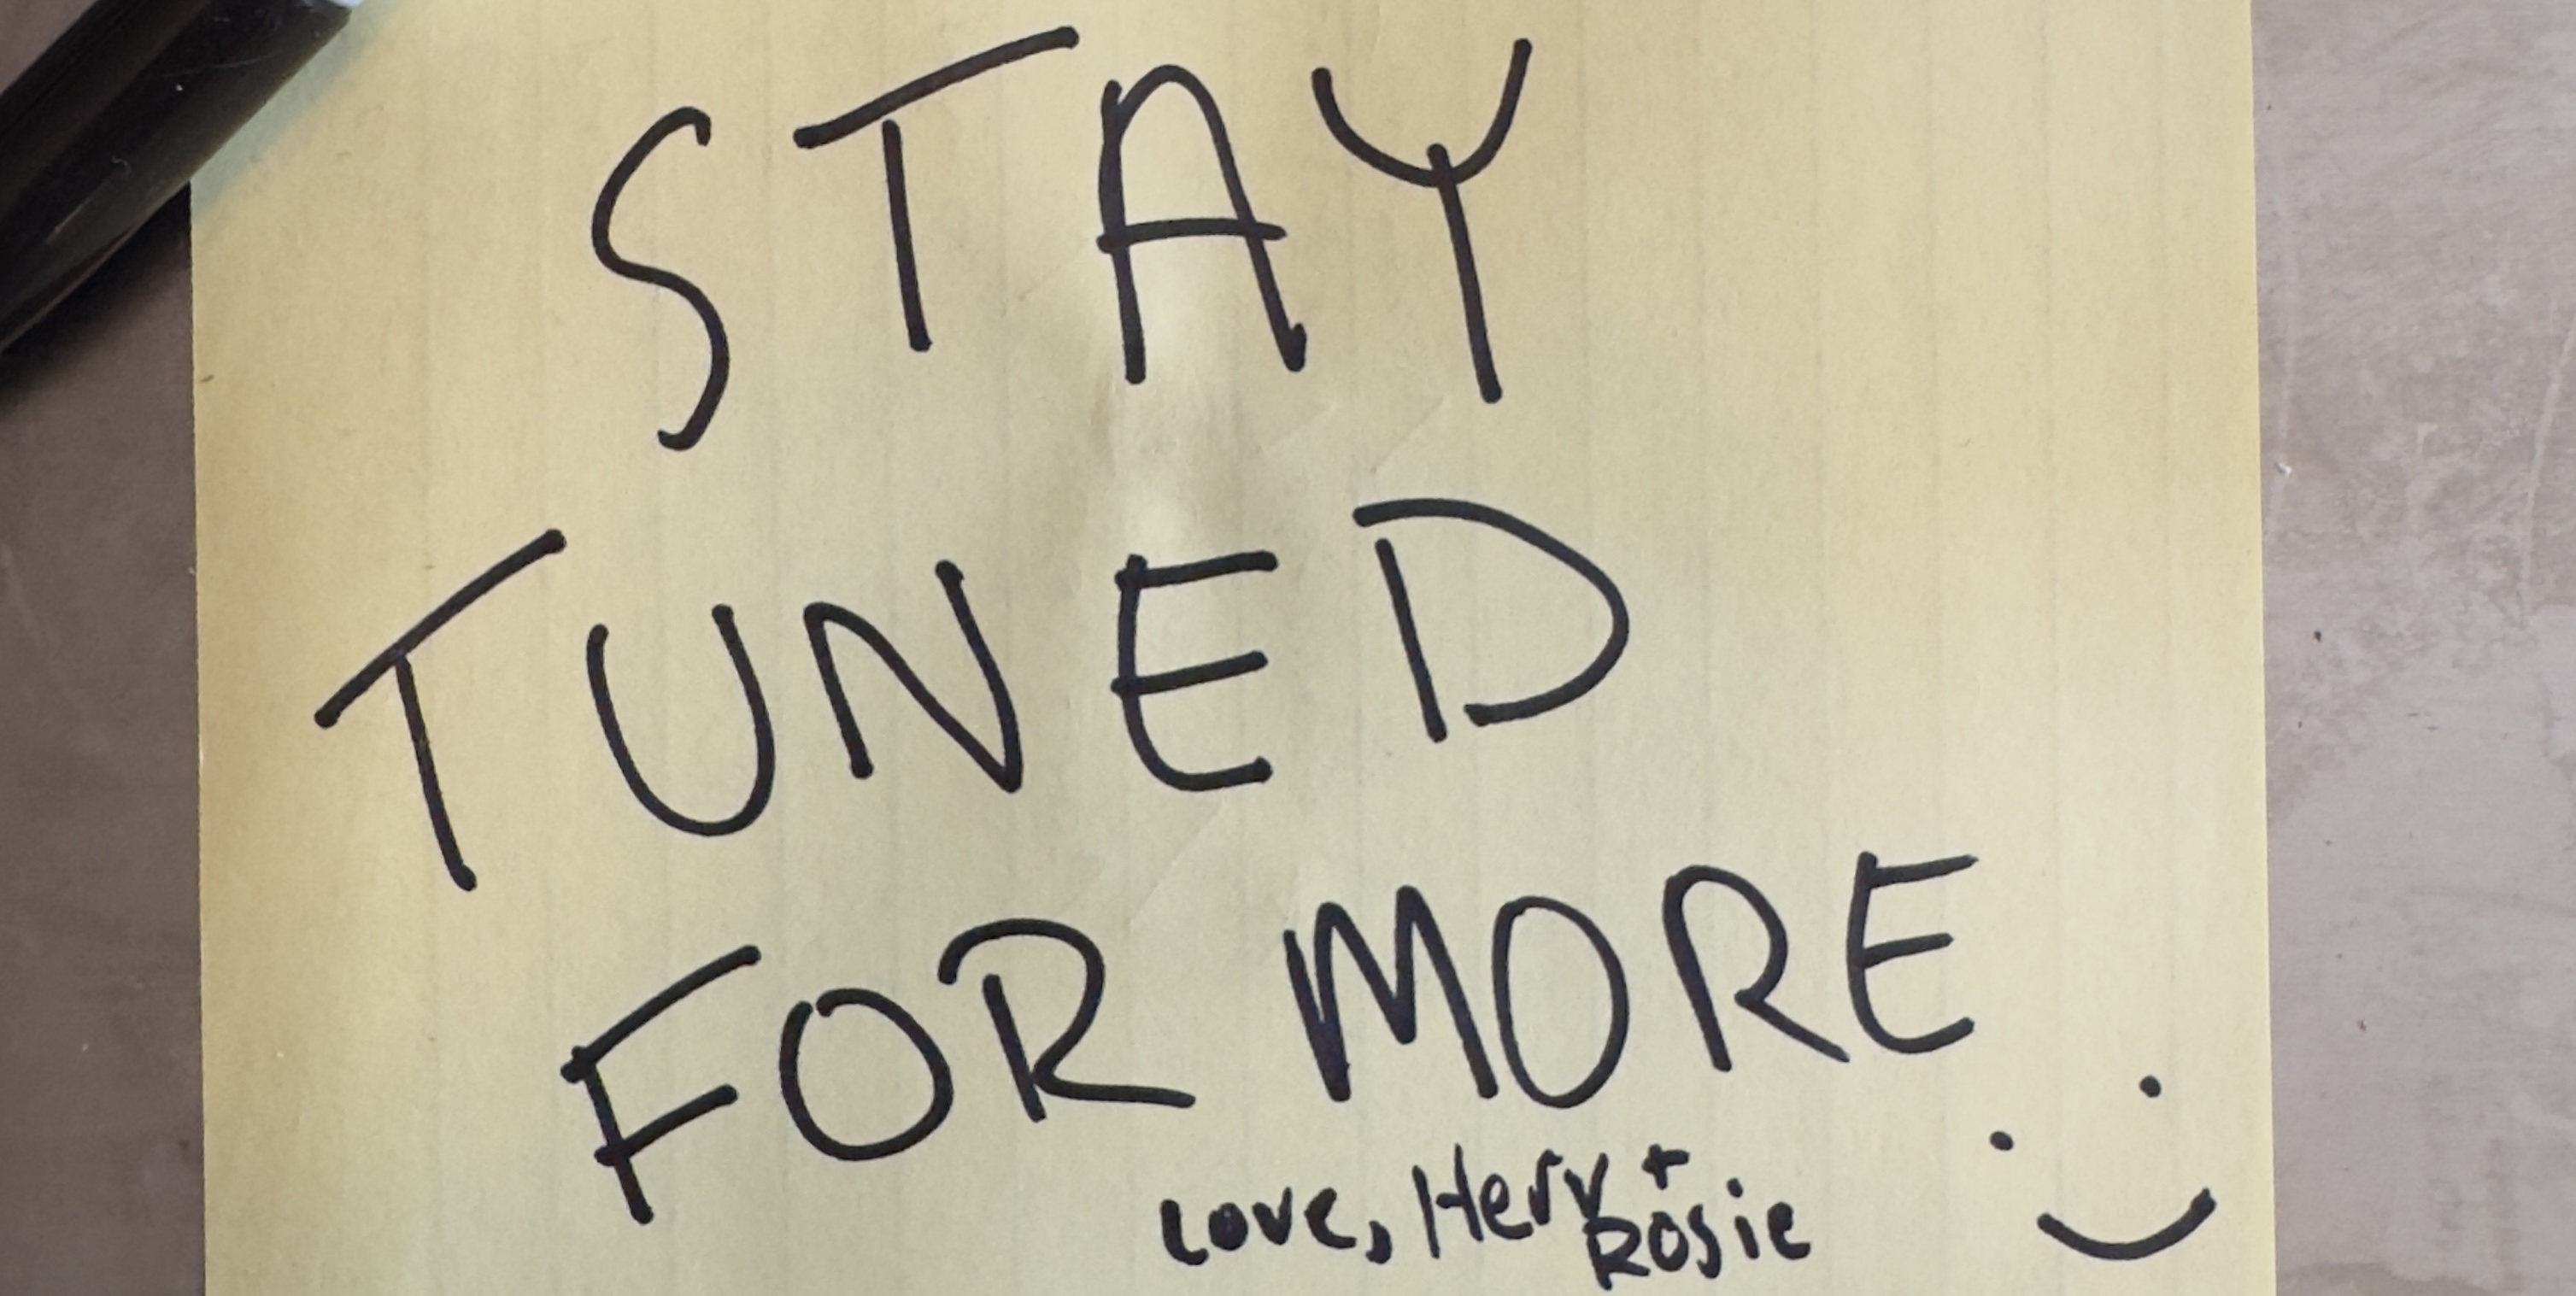 STAY
TUNED
FOR MORE
Love, Herv +
Rosie